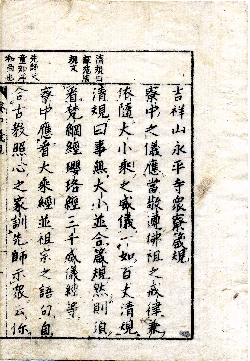 吉祥山永平寺衆寮箴規
寮中之儀應當敬遵佛祖之戒律兼
依隨大小乘之威儀一如百丈清規
清規曰事無大小並合箴規然則須
看梵網經瓔珞經三千威儀經等
寮中應看大乘經並祖宗之語句自
合古教照心之家訓先師示衆云你
清規曰